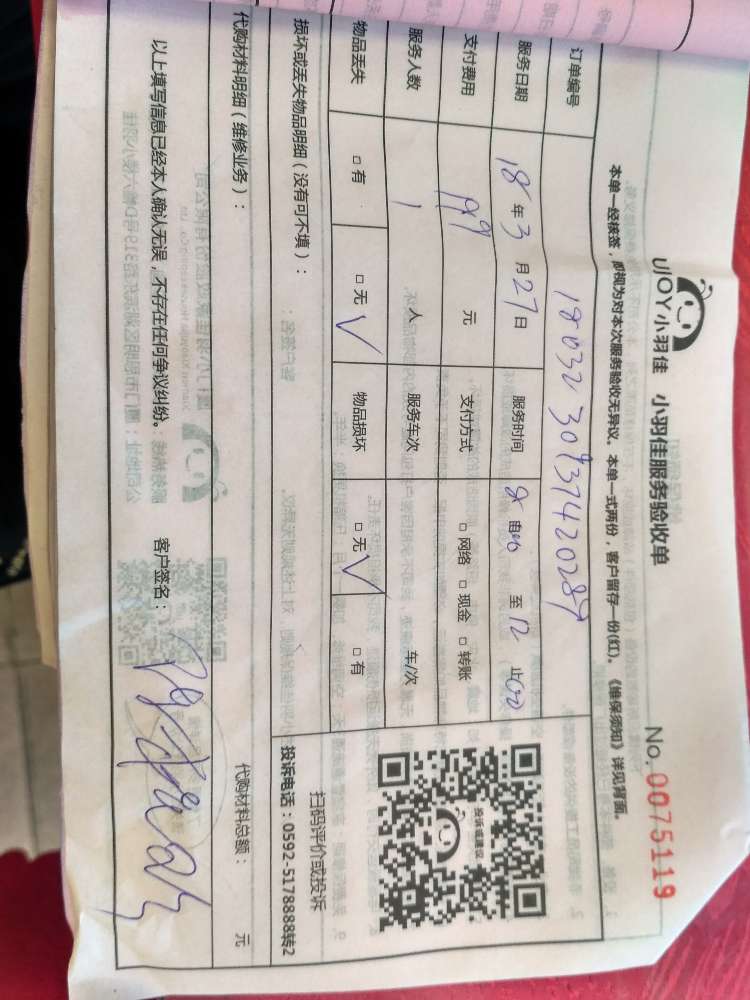 UJOY小羽佳 小羽佳服务验收单 No. 0075119
本单一经核签，即视为对本次服务验收无异议。本单一式两份，客户留存一份(红)。《维保须知》详见背面。
订单编号
服务日期 18 年 3 月 27 日 服务时间 8 由 至 12 止00
支付费用 元 支付方式 □ 网络 □ 现金 □ 转账
服务人数 1 人 服务车次 车/次
物品丢失 □ 有 □ 无 √ 物品损坏 □ 无 √ □ 有
投诉或建议
扫码评价或投诉
投诉电话：0592-5178888转2
损坏或丢失物品明细（没有可不填）：
代购材料明细（维修业务）： 代购材料总额： 元
以上填写信息已经本人确认无误，不存在任何争议纠纷。 客户签名：